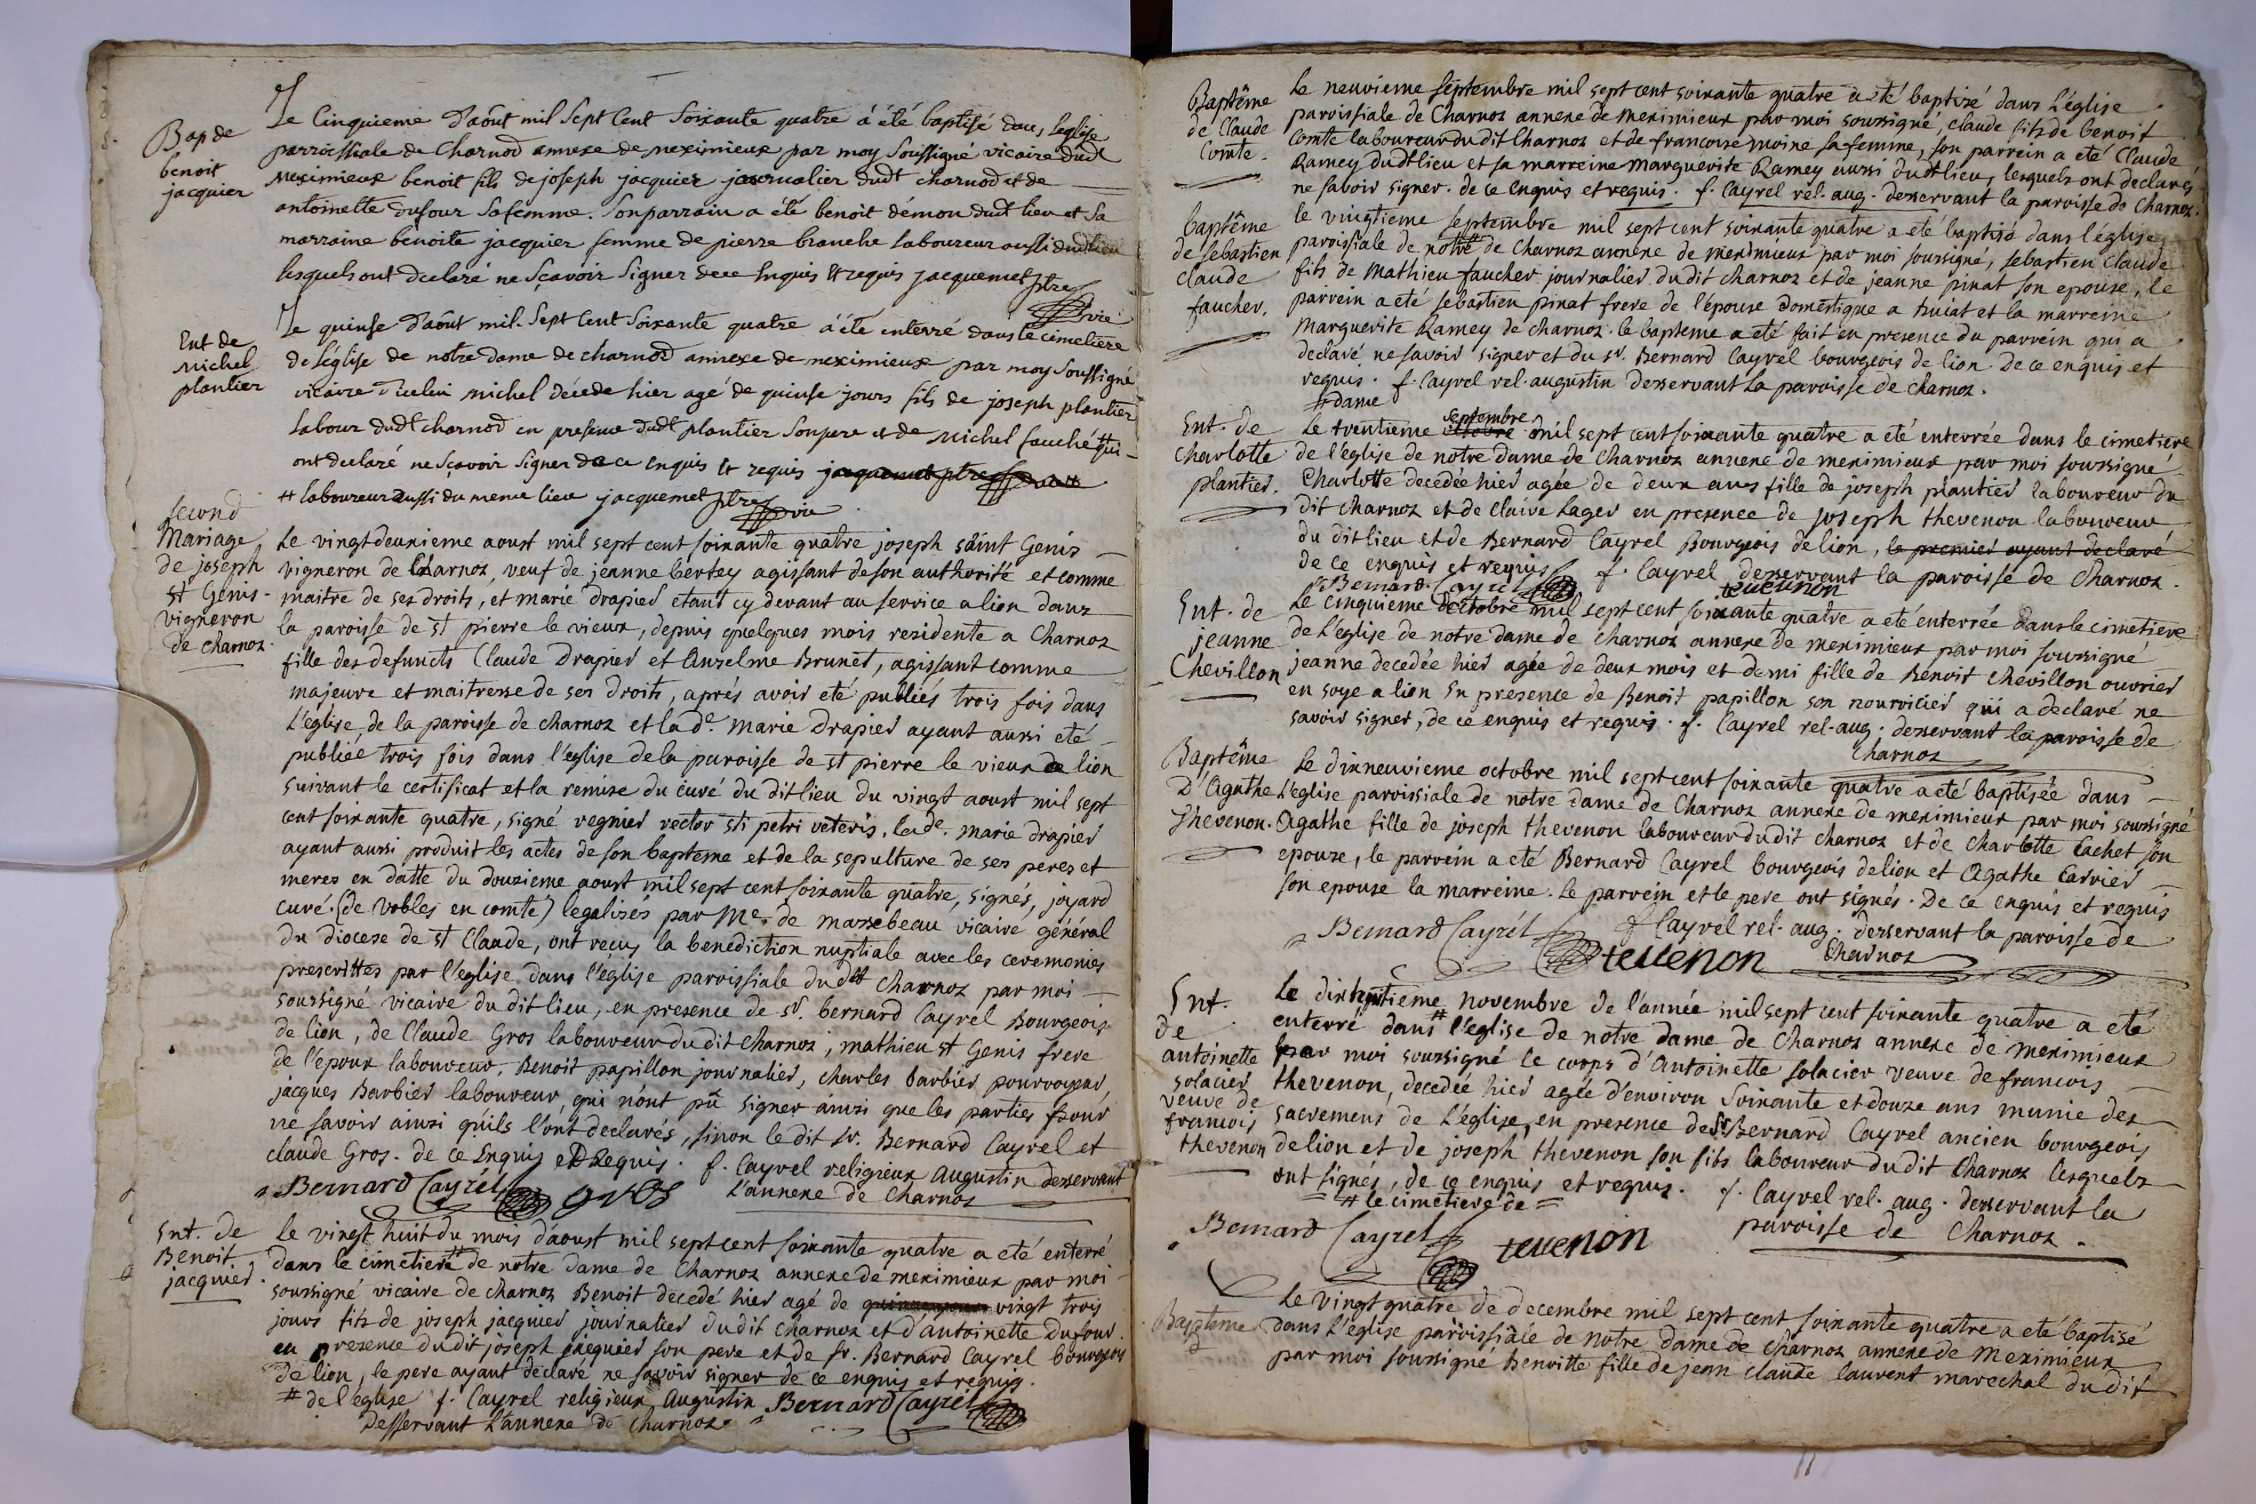 Bap de
benoit
jacquier
Le Cinquieme d'aôut mil Sept Cent Soixante quatre á été baptisé dans leglise
parroissiale de Charnod annexe de meximieux par moy Soussigné vicaire dudt
meximieux benoit fils de joseph jacquier journalier dudt charnod et de
antoinette dufour Safemme. Son parrain a été benoit démon dudt lieu et Sa
marraine benoite jacquier femme de pierre branche Laboureur aussi dudt lieu
lesquels ont declaré ne Sçavoir Signer de ce Enquis Et requis jacquemet ptre
vic
Ent de
Michel
plantier
Le quinse d'aôut mil Sept Cent Soixante quatre á été enterré dans le cimetiere
de L'église de notre dame de charnod annexe de meximieux par moy Soussigné
vicaire d'icelui Michel décede hier agé de quinse jours fils de joseph plantier
Labour dudt charnod en presence dudt plantier Son pere et de Michel fauché # qui
ont declaré ne Sçavoir Signer de ce enquis Et requis jacquemet ptre
# laboureur aussi du meme lieu jacquemet ptre vic
second
Mariage
de joseph
st Genis
vigneron
de charnoz
Le vingtdeuxieme aoust mil sept cent soixante quatre joseph saint Genis
vigneron de Charnoz, veuf de jeanne bertey agissant de son authorité et comme
maitre de ses droits, et marie drapier etant cy devant au service a lion dans
la paroisse de st pierre le vieux, depuis quelques mois residente a Charnoz
fille des defuncts Claude Drapier et Anzelme Brunet, agissant comme
majeure et maitresse de ses droits, aprés avoir eté publiés trois fois dans
L'eglise de la paroisse de charnoz et lade. Marie drapier ayant aussi eté
publiée trois fois dans l'église de la paroisse de st pierre le vieux de lion
suivant le certificat et la remise du curé du dit lieu du vingt aoust mil sept
cent soixante quatre, signé regnier rector sti petri veteris. lade. marie drapier
ayant aussi produit les actes de son bapteme et de la sepulture de ses peres et
meres en datte du douzieme aoust mil sept cent soixante quatre, signés, joyard
curé (de vobles en comté) legalisés par Me. de marsebeau vicaire général
du diocese de st Claude, ont reçus la benediction nuptiale avec les ceremonies
prescrittes par l'eglise dans l'église paroissiale dudt charnoz par moi
soussigné vicaire du dit lieu, en presence de sr. bernard Cayrel Bourgeois
de lion, de Claude Gros laboureur du dit charnoz, mathieu st Genis frere
de l'epoux laboureur, Benoit papillon journalier, charles barbier pourvoyeur,
jacques Barbier laboureur, qui n'ont pû signer ainsi que les parties pour
ne savoir ainsi qu'ils l'ont declarés, sinon le dit sr. Bernard Cayrel et
claude Gros. de ce Enquis et Requis. f. Cayrel religieux augustin desservant
Bernard Cayrél gros L'annexe de Charnoz
Ent. de
Benoit
jacquier.
Le vingt huit du mois d'aoust mil sept cent soixante quatre a eté enterré
dans le cimetiere # de notre dame de Charnoz annexe de meximieux par moi
soussigné vicaire de charnoz Benoit decedé hier agé de vingt trois
jours fils de joseph jacquier journalier dudit charnoz et d'antoinette Dufour.
en presence dudit joseph jacquier son pere et de sr. Bernard Cayrel bourgeois
de lion, le pere ayant declaré ne savoir signer de ce enquis et requis.
# de l'eglise f. Cayrel religieux Augustin Bernard Cayrél
Desservant L'annexe de Charnoz
Baptême
de Claude
Comte.
Le neuvieme septembre mil sept cent soixante quatre a eté baptizé dans L'église
paroissiale de Charnoz annexe de meximieux par moi soussigné, claude fils de benoit
Comte laboureur du dit Charnoz et de francoise moine sa femme, son parrein a eté Claude
Ramey dudt lieu et sa marreine Marguerite Ramey aussi dudt lieu, lesquels ont declarés
ne savoir signer. de ce Enquis et requis. f. Cayrel rel. aug. desservant la paroisse de Charnoz.
baptême
de sebastien
Claude
faucher.
le vingtieme septembre mil sept cent soixante quatre a eté baptisé dans l'église
paroissiale de notre # de charnoz annexe de meximieux par moi soussigné, sebastien Claude
fils de Mathieu faucher journalier dudit charnoz et de jeanne pinat son epouse, le
parrein a eté sebastien pinat frere de l'épouse domestique a huiat et la marreine
Marguerite Ramey de charnoz. le bapteme a eté fait en presence du parrein qui a
declaré ne savoir signer et du sr. Bernard Cayrel bourgeois de lion de ce enquis et
requis. f. Cayrel rel. augustin desservant La paroisse de charnoz.
# dame
Ent. de
Charlotte
plantier.
Le trentieme septembre mil sept cent soixante quatre a eté enterrée dans le cimetiere
de l'eglise de notre dame de Charnoz annexe de meximieux par moi soussigné
Charlotte decedée hier agée de deux ans fille de joseph plantier laboureur du
dit charnoz et de Claire Lager en presence de joseph thevenon laboureur
du dit lieu et de Bernard Cayrel Bourgeois de lion, le premier ayant declaré
de ce enquis et requis f. Cayrel desservant la paroisse de Charnoz.
Bernard Cayrel tevenon
Ent. de
jeanne
Chevillon
Le cinquieme d'octobre mil sept cent soixante quatre a eté enterrée dans le cimetiere
de L'eglise de notre dame de charnoz annexe de meximieux par moi soussigné
jeanne decedée hier agée de deux mois et demi fille de Benoit chevillon ouvrier
en soye a lion En presence de Benoit papillon son nourricier qui a declaré ne
savoir signer, de ce enquis et requis. f. Cayrel rel. aug. desservant la paroisse de
charnoz
Baptême
D'Agathe
Thevenon.
Le dixneuvieme octobre mil sept cent soixante quatre a eté baptisée dans
L'eglise paroissiale de notre dame de Charnoz annexe de meximieux par moi soussigné
Agathe fille de joseph thevenon laboureur dudit charnoz et de Charlotte Cachet son
epouze, le parrein a eté Bernard Cayrel bourgeois de lion et Agathe Carrier
son epouse la marreine. le parrein et le pere ont signés. De ce enquis et requis
Bernard Cayrél f Cayrel rel. aug. desservant la paroisse de
tevenon Charnoz
Ent.
de
antoinette
solacier
veuve de
francois
thevenon
Le dixhuitieme novembre de l'année mil sept cent soixante quatre a eté
enterré dans # l'eglise de notre dame de Charnoz annexe de meximieux
par moi soussigné le corps d'Antoinette solacier veuve de francois
thevenon, decedée hier agée d'environ soixante et douze ans munie des
sacremens de L'église, en presence de Sr Bernard Cayrel ancien bourgeois
de lion et de joseph thevenon son fils laboureur du dit Charnoz lesquels
ont signés, de ce enquis et requis. f. Cayrel rel. aug. desservant la
# le cimetiere de = paroisse de Charnoz.
Bernard Cayrel tevenon
Bapteme
D
Le vingt quatre de decembre mil sept cent soixante quatre a eté baptisé
dans L'eglise paroissiale de notre dame de charnoz annexe de Meximieux
par moi soussigné Benoitte fille de jean claude laurent marechal du dit